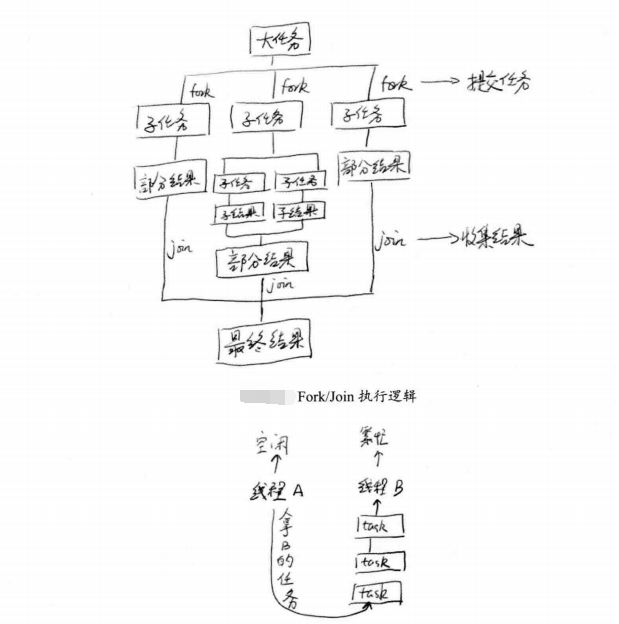 大任务
fork fork fork → 提交任务
子任务 子任务 子任务
部分结果 子任务 子任务 部分结果
子结果 子结果
join 部分结果 join → 收集结果
join
最终结果
Fork/Join 执行逻辑
空闲 繁忙
线程 A 线程 B
拿B的任务
task
task
task